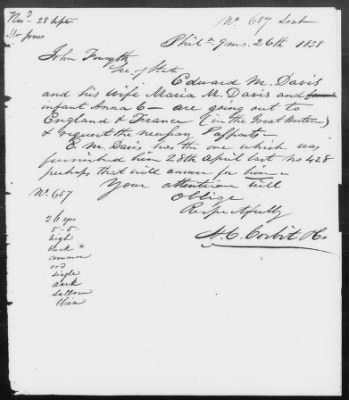 No 657 Sent
28 Apr
Phila 26th 1838
John Forsyth
Sec of State
Edward M. Davis
and his wife Maria M. Davis and
infant Anna C— are going out to
England & France (in the Great Western)
& request the necessary Passports—
E. M. Davis has the one which was
furnished him 28th April last no 428
perhaps that will answer for him—
Your attention will
oblige
Respectfully
No. 657
26 yrs
5-8
high
dark
common
ord
single
dark
sallow
thin